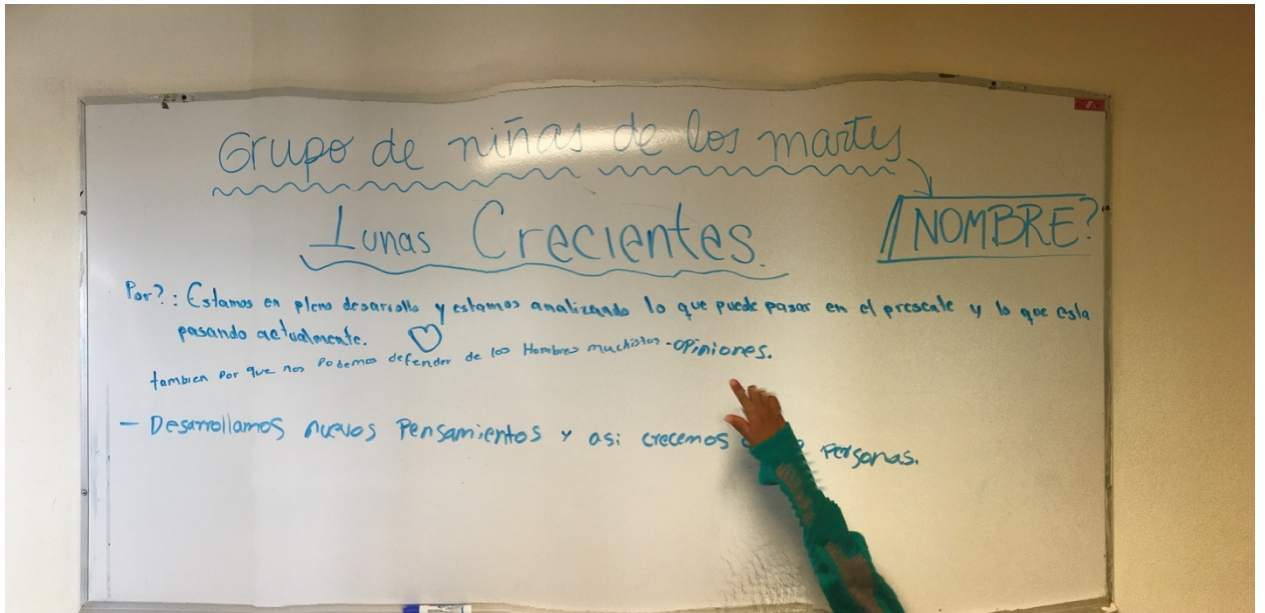 Grupo de niñas de los martes
NOMBRE?
Lunas Crecientes.
Por?: Estamos en pleno desarrollo y estamos analizando lo que puede pasar en el presente y lo que esta
pasando actualmente.
tambien por que nos podemos defender de los Hombres muchistas - opiniones.
- Desarrollamos nuevos Pensamientos y asi crecemos Personas.